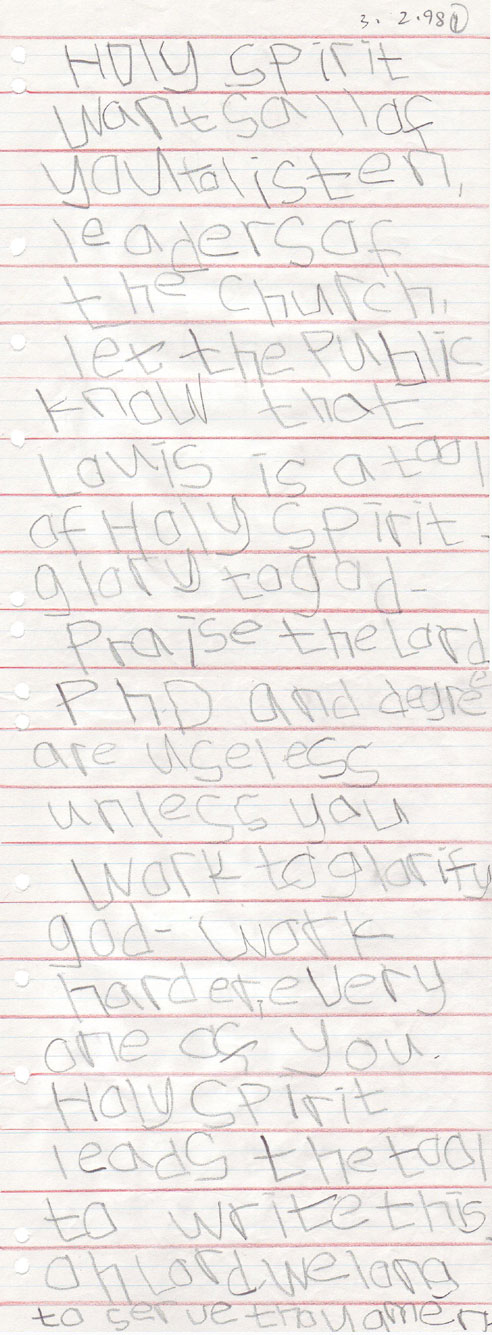 3. 2.98 1
Holy Spirit
wants all of
you to listen,
leaders of
the church,
let the Public
know that
Louis is a tool
of Holy Spirit.
glory to god-
Praise the Lord
PhD and degree
are useless
unless you
work to glorify
god- work
harder, every
one as you.
Holy Spirit
leads the tool
to write this
oh Lord, we long
to serve thou amen